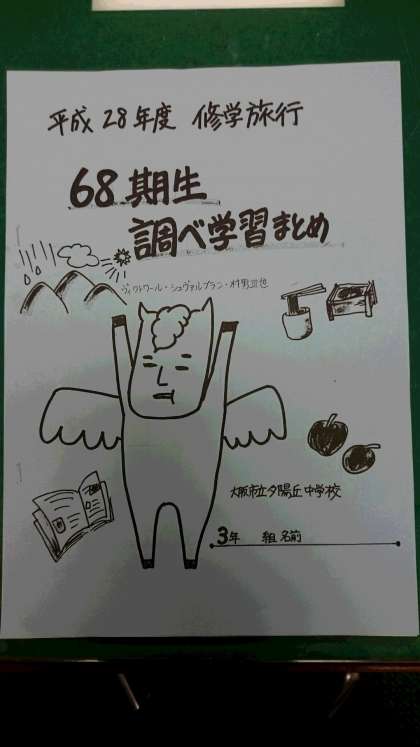 平成28年度 修学旅行
68期生
調べ学習まとめ
ヴィクトワール・シュヴァルブラン・村野
大阪市立夕陽丘中学校
3年 組 名前